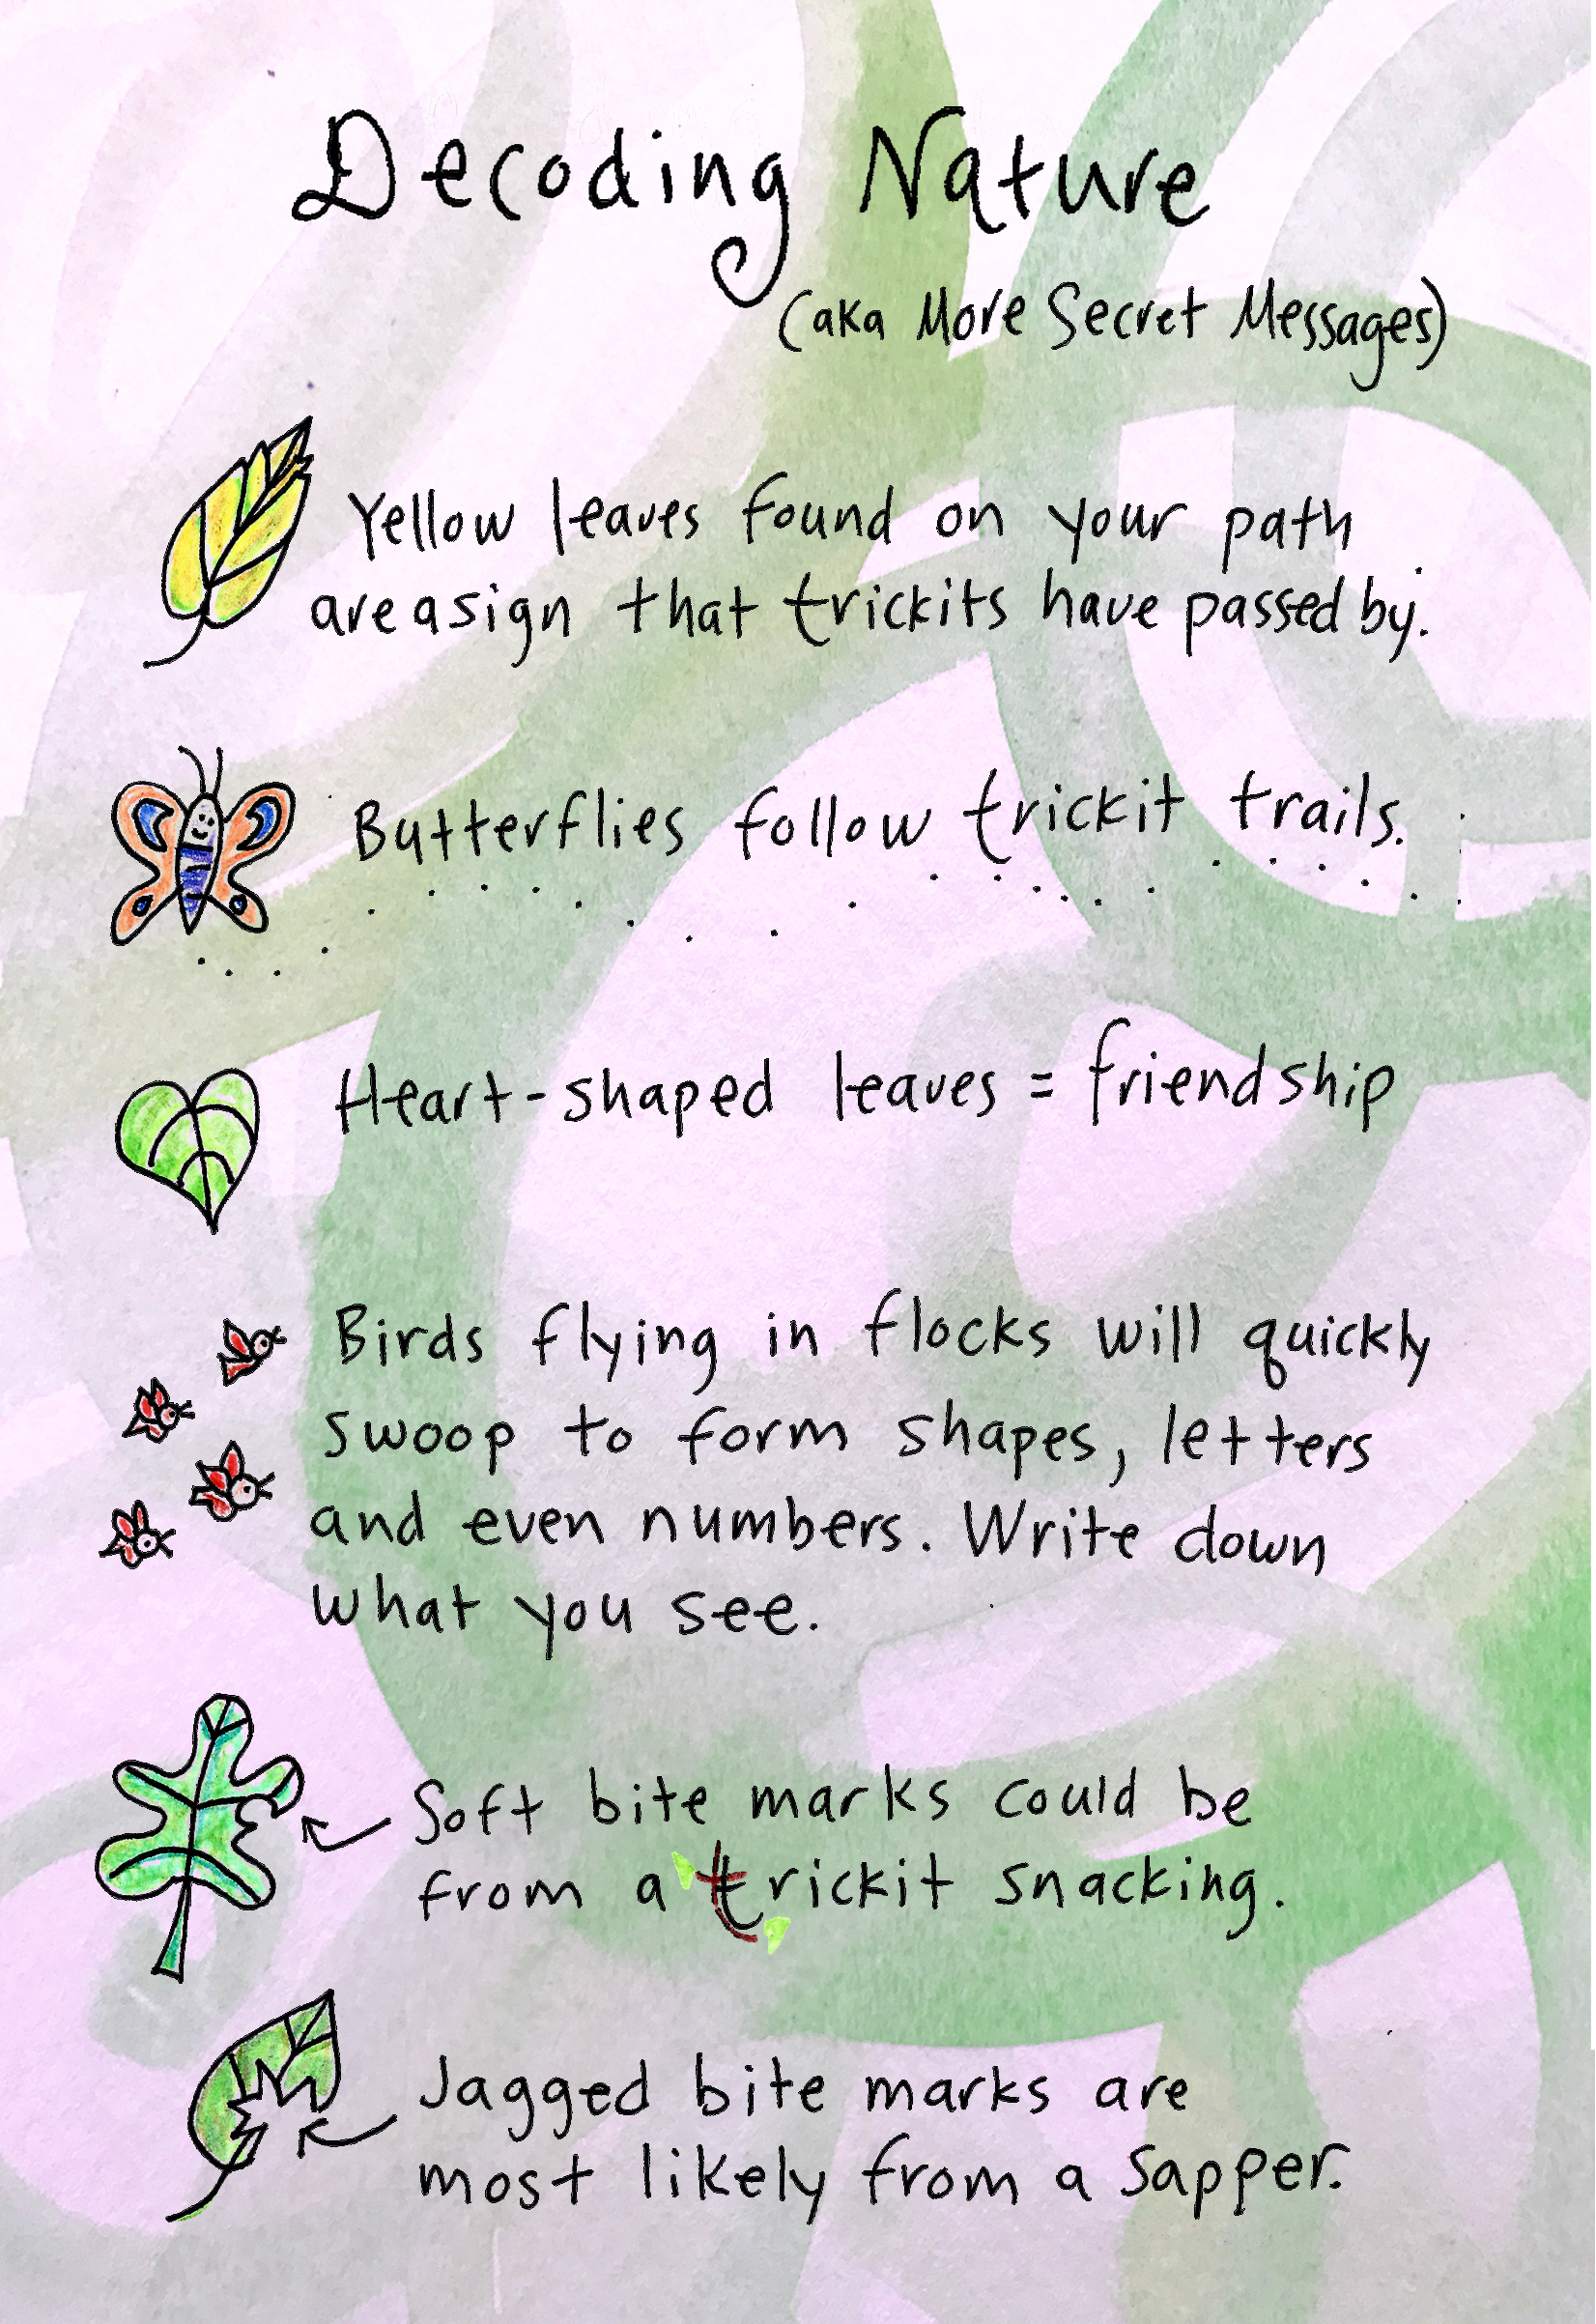 Decoding Nature
(aka More Secret Messages)
Yellow leaves found on your path
are a sign that trickits have passed by.
Butterflies follow trickit trails.
Heart-shaped leaves = friendship
Birds flying in flocks will quickly
swoop to form shapes, letters
and even numbers. Write down
what you see.
Soft bite marks could be
from a trickit snacking.
Jagged bite marks are
most likely from a sapper.